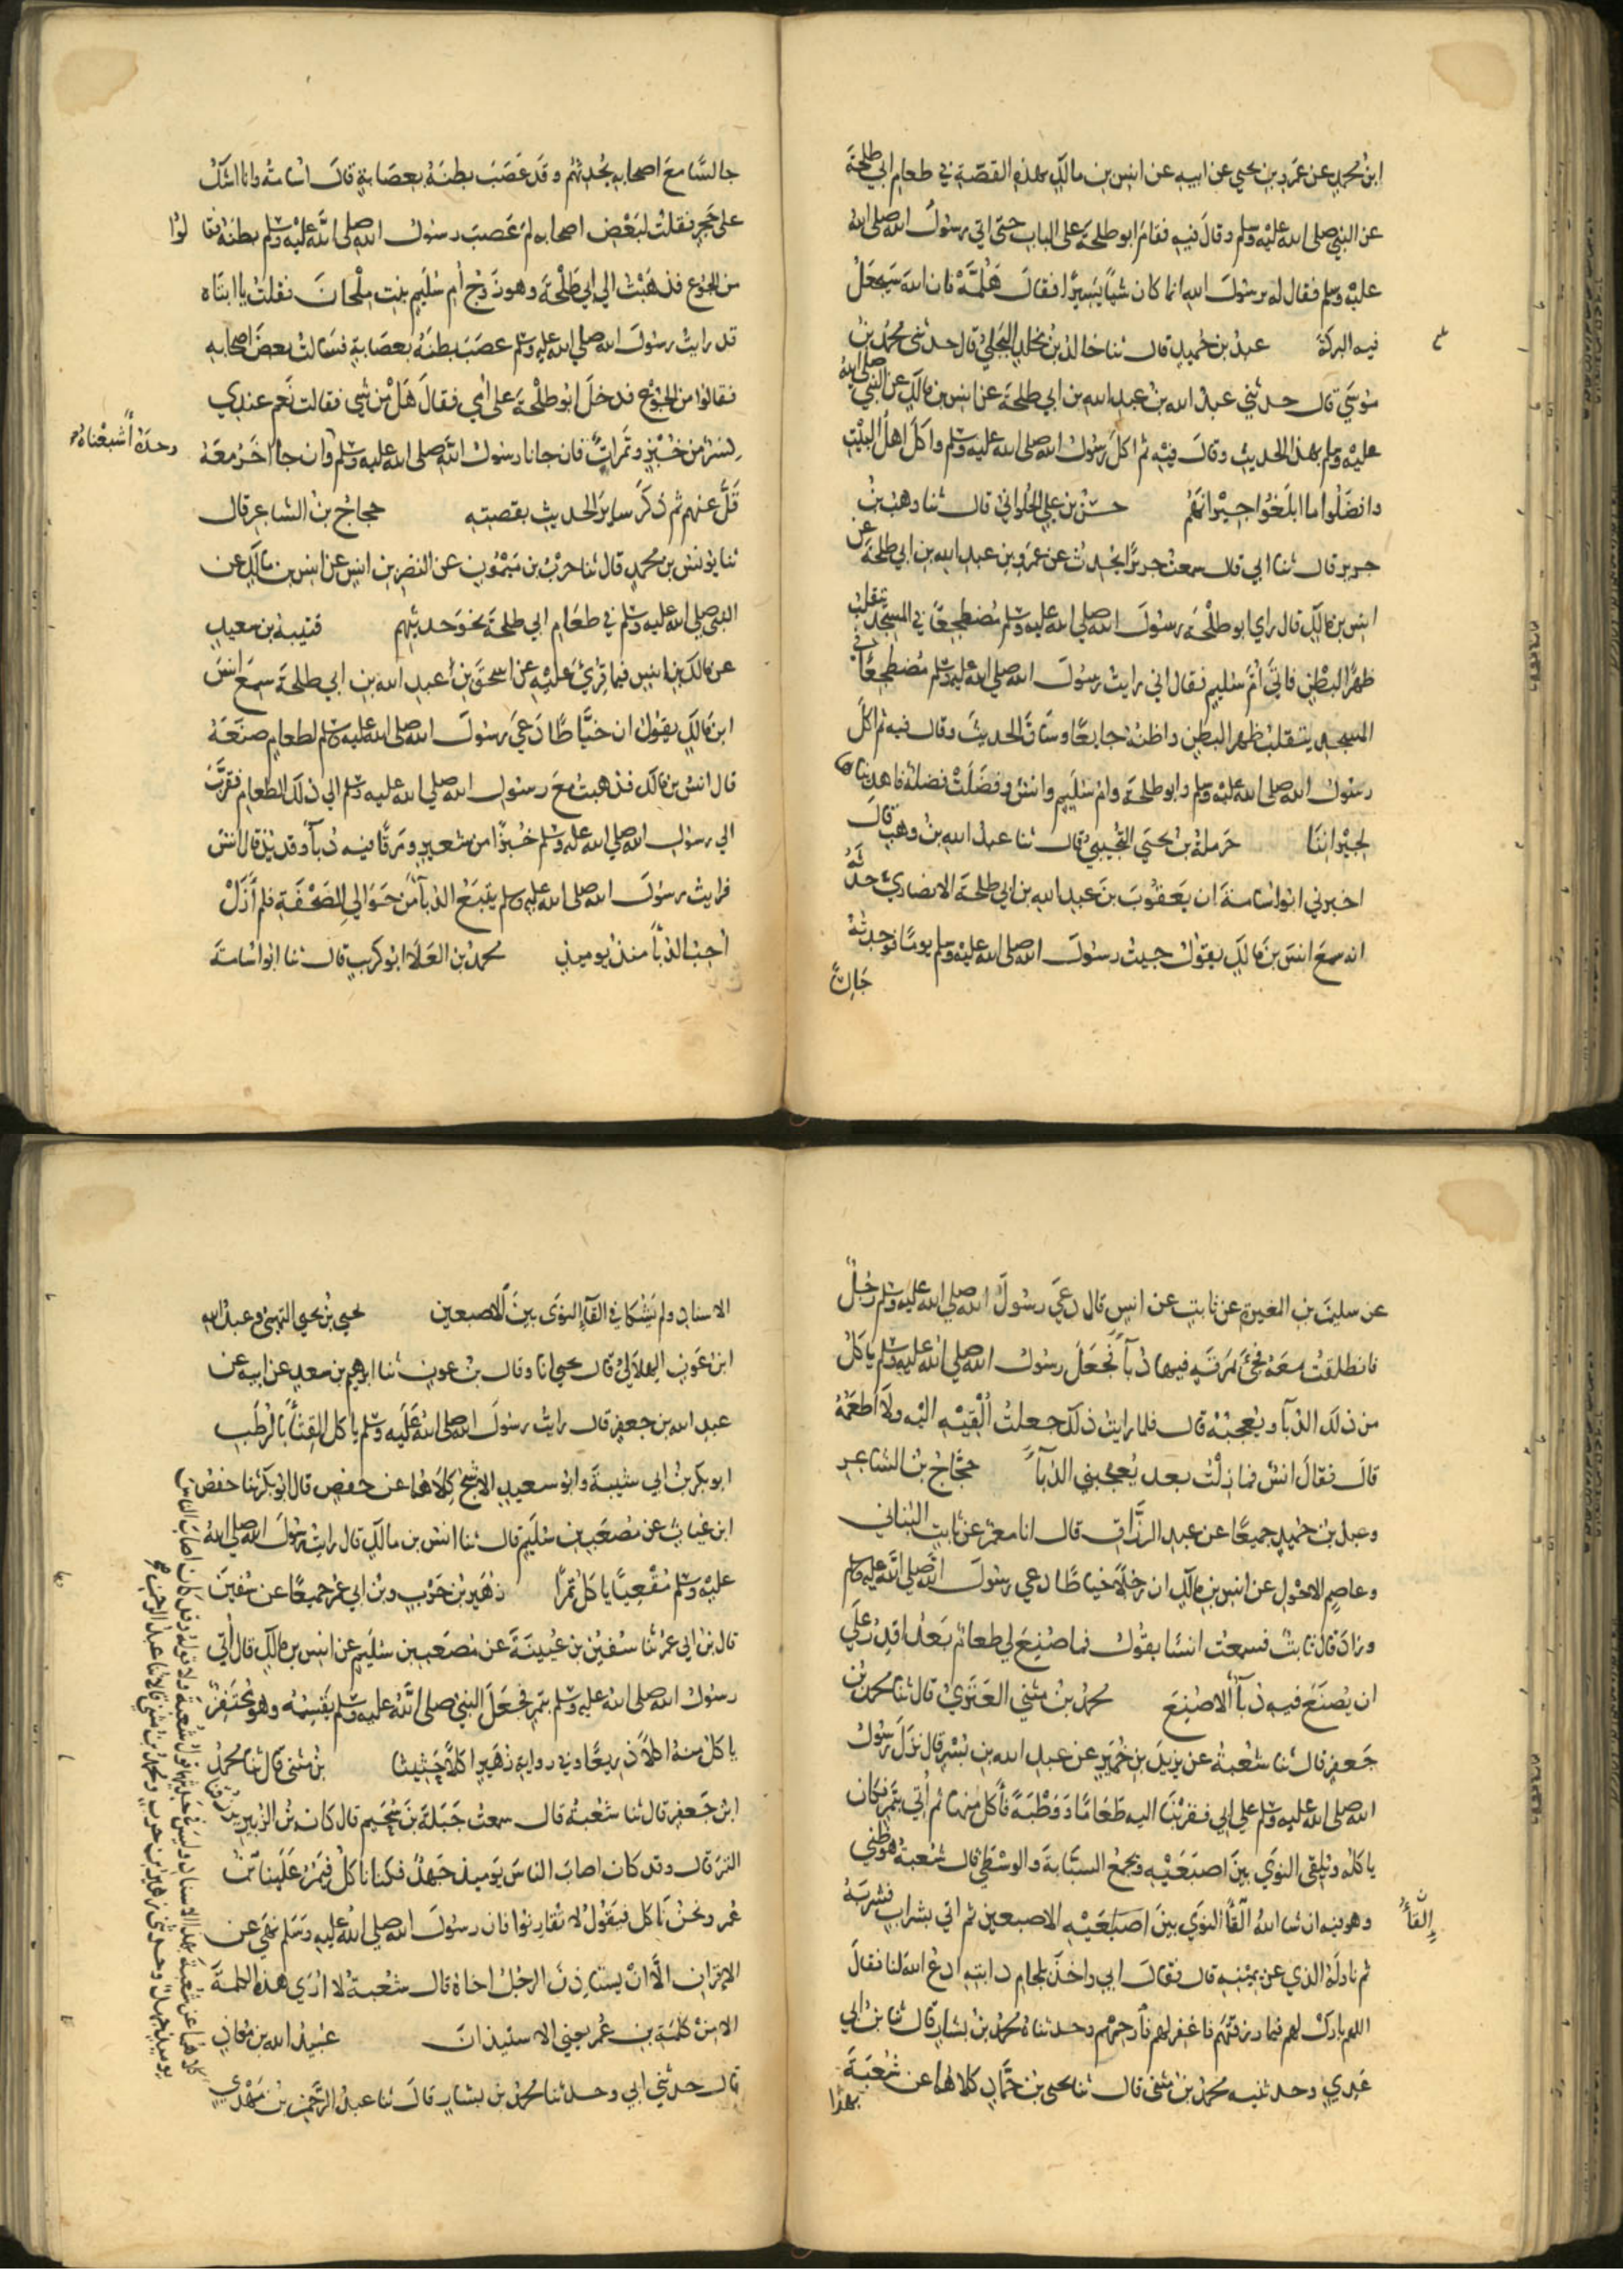 ابن محمد عن عمرو بن يحيى عن ابيه عن انس بن مالك بهذه القصة في طعام ابي طلحة
عن النبي صلى الله عليه وسلم وقال فيه فقام ابو طلحة على الباب حتى اتى رسول الله صلى الله
عليه وسلم فقال له يرسول الله انما كان شيأ يسيرًا فقال هلمه فان الله سيجعل
فيه البركة عبد بن حميد قال ثنا خالد بن مخلد البجلي قال حدثني محمد بن
موسى قال حدثني عبد الله بن عبد الله بن ابي طلحة عن انس بن مالك عن النبي صلى الله
عليه وسلم بهذا الحديث وقال فيه ثم اكل رسول الله صلى الله عليه وسلم واكل اهل البيت
وافضلوا ما ابلغوا جيرانهم حسن بن علي الحلواني قال ثنا وهب بن
جرير قال ثنا ابي قال سمعت جريرًا يحدث عن عمرو بن عبد الله بن ابي طلحة عن
انس بن مالك قال راى ابو طلحة رسول الله صلى الله عليه وسلم مضطجعًا في المسجد يتقلب
ظهرًا لبطن فاتى ام سليم فقال اني رايت رسول الله صلى الله عليه وسلم مضطجعًا في
المسجد يتقلب ظهر البطن واظنه جايعًا وساق الحديث وقال فيه ثم اكل
رسول الله صلى الله عليه وسلم وابو طلحة وام سليم وانس وفضلت فضلة فاهديناها
لجيراننا حرملة بن يحيى التجيبي قال ثنا عبد الله بن وهب قال
اخبرني ابو اسامة ان يعقوب بن عبد الله بن ابي طلحة الانصاري حدثه
انه سمع انس بن مالك يقول جيت رسول الله صلى الله عليه وسلم يومًا فوجدته
جالسًا
جالسًا مع اصحابه يحدثهم وقد عصب بطنه بعصابة قال اسامة وانا اشك
على حجر فقلت لبعض اصحابه لم عصب رسول الله صلى الله عليه وسلم بطنه فقالوا
من الجوع فذهبت الى ابي طلحة وهو زوج ام سليم بنت ملحان فقلت يا ابتاه
قد رايت رسول الله صلى الله عليه وسلم عصب بطنه بعصابة فسالت بعض اصحابه
فقالوا من الجوع فدخل ابو طلحة على امي فقال هل من شي فقالت نعم عندي
كسر من خبز وتمرات فان جانا رسول الله صلى الله عليه وسلم وان جا اخر معه
وحده أشبعناه
قل عنهم ثم ذكر ساير الحديث بقصته حجاج بن الشاعر قال
ثنا يونس بن محمد قال ثنا حرب بن ميمون عن النضر بن انس عن انس بن مالك عن
النبي صلى الله عليه وسلم في طعام ابي طلحة نحو حديثهم قتيبة بن سعيد
عن مالك بن انس فيما قرئ عليه عن اسحق بن عبد الله بن ابي طلحة سمع انس
ابن مالك يقول ان خياطًا دعى رسول الله صلى الله عليه وسلم لطعام صنعه
قال انس بن مالك فذهبت مع رسول الله صلى الله عليه وسلم الى ذلك الطعام فقرب
الى رسول الله صلى الله عليه وسلم خبزًا من شعير ومرقًا فيه دباء وقديد قال انس
فرايت رسول الله صلى الله عليه وسلم يتبع الدباء من حوالي الصحفة فلم أزل
أحب الدباء منذ يوميذ محمد بن العلاء ابو كريب قال ثنا ابو اسامة
عن سليمن بن المغيرة عن ثابت عن انس قال دعى رسول الله صلى الله عليه وسلم رجل
فانطلقت معه فجئ بمرقة فيها دباء فجعل رسول الله صلى الله عليه وسلم ياكل
من ذلك الدباء ويعجبه قال فلما رايت ذلك جعلت ألقيه اليه ولا أطعمه
قال فقال انس فما زلت بعد يعجبني الدباء حجاج بن الشاعر
وعبد بن حميد جميعًا عن عبد الرزاق قال انا معمر عن ثابت البناني
وعاصم الاحول عن انس بن مالك ان رجلاً خياطًا دعى رسول الله صلى الله عليه وسلم
وزاد قال ثابت فسمعت انسًا يقول فما صنع لي طعام بعد اقدر على
ان يصنع فيه دباء الا صنع محمد بن مثنى العنزي قال ثنا محمد بن
جعفر قال ثنا شعبة عن يزيد بن خمير عن عبد الله بن بسر قال نزل رسول
الله صلى الله عليه وسلم على ابي فقربنا اليه طعامًا ووطبة فأكل منها ثم أتي بتمر فكان
ياكله ويلقي النوى بين اصبعيه ويجمع السبابة والوسطى قال شعبة هو ظني
وهو فيه ان شا الله القاء النوى بين اصبعيه الاصبعين ثم اتي بشراب فشربه
إلقاء
ثم ناوله الذي عن يمينه قال فقال ابي واخذ بلجام دابته ادع الله لنا فقال
اللهم بارك لهم فيما رزقتهم فاغفر لهم فارحمهم وحدثناه محمد بن بشار قال ثنا بن ابي
عدي وحدثنيه محمد بن مثنى قال ثنا يحيى بن حماد كلاهما عن شعبة
بهذا
الاسناد ولم يشكا في القاء النوى بين الاصبعين يحيى بن يحيى التميمي وعبد الله
ابن عون الهلالي قال يحيى انا وقال بن عون ثنا ابرهيم بن سعد عن ابيه عن
عبد الله بن جعفر قال رايت رسول الله صلى الله عليه وسلم ياكل القثاء بالرطب
ابو بكر بن ابي شيبة وابو سعيد الاشج كلاهما عن حفص قال ابو بكر ثنا حفص
ابن غياث عن مصعب بن سليم قال ثنا انس بن مالك قال رايت رسول الله صلى الله
عليه وسلم مقعيًا ياكل تمرًا زهير بن حرب وبن ابي عمر جميعًا عن سفين
قال بن ابي عمر ثنا سفين بن عيينة عن مصعب بن سليم عن انس بن مالك قال أتي
رسول الله صلى الله عليه وسلم بتمر فجعل النبي صلى الله عليه وسلم يقسمه وهو محتفز
ياكل منه اكلاً ذريعًا وفي رواية زهير اكلاً حثيثا بن مثنى قال ثنا محمد
ابن جعفر قال ثنا شعبة قال سمعت جبلة بن سحيم قال كان بن الزبير يرزقنا
التمر قال وقد كان اصاب الناس يوميذ جهد فكنا ناكل فيمر علينا بن
عمر ونحن ناكل فيقول لا تقارنوا فان رسول الله صلى الله عليه وسلم نهى عن
الاقران الا ان يستاذن الرجل اخاه قال شعبة لا ارى هذه الكلمة
الا من كلمة بن عمر يعني الاستيذان عبيد الله بن معاذ
قال حدثني ابي وحدثنا محمد بن بشار قال ثنا عبد الرحمن بن مهدي
كلاهما عن شعبة بهذا الاسناد وليس في حديثهما قول شعبة ولا قوله وقد كان اصاب الناس
يوميذ جهد وحدثني زهير بن حرب ومحمد بن مثنى قالا ثنا عبد الرحمن